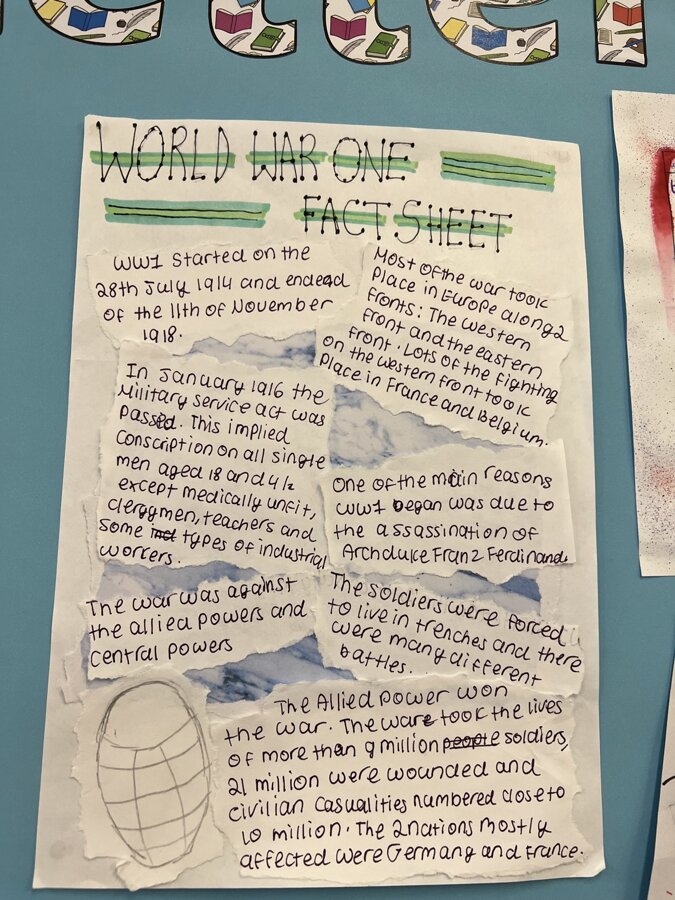 WORLD WAR ONE
FACT SHEET
WW1 started on the
28th July 1914 and endead
of the 11th of November
1918.
Most of the war took
place in Europe along 2
fronts: The western
front and the eastern
front. Lots of the fighting
on the western front took
place in France and Belgium.
In January 1916 the
Military service act was
passed. This implied
conscription on all single
men aged 18 and 41
except medically unfit,
clergymen, teachers and
some types of industrial
workers.
One of the main reasons
WW1 began was due to
the assassination of
Archduke Franz Ferdinand.
The war was against
the allied powers and
central powers
The soldiers were forced
to live in trenches and there
were many different
battles.
The Allied power won
the war. The war took the lives
of more than 9 million people soldiers,
21 million were wounded and
civilian casualities numbered close to
10 million. The 2 nations mostly
affected were Germany and France.